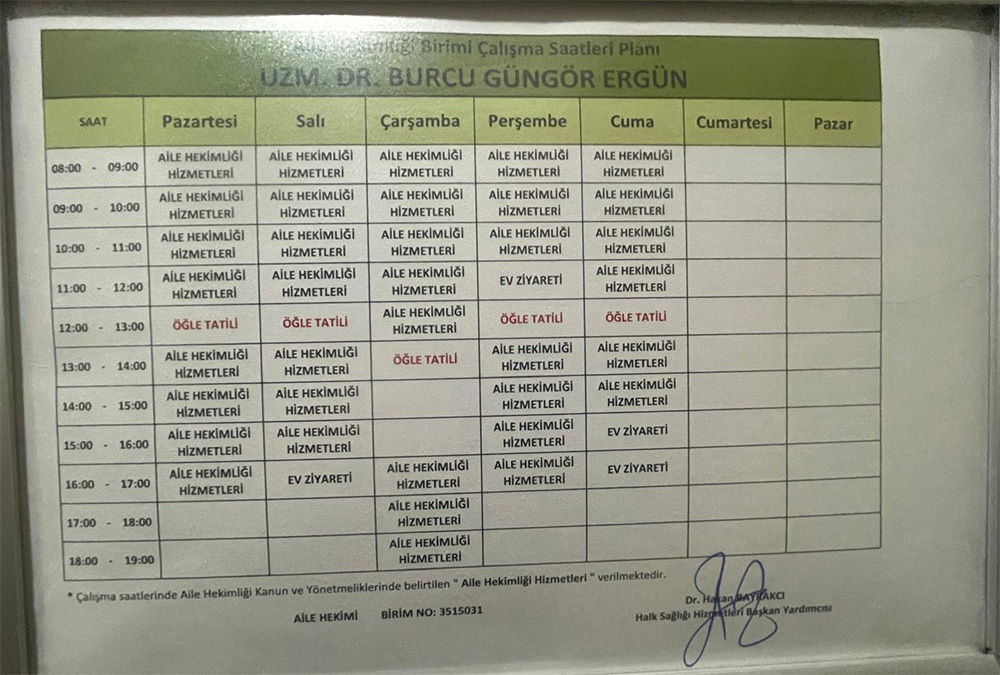 Aile Hekimliği Birimi Çalışma Saatleri Planı
UZM. DR. BURCU GÜNGÖR ERGÜN
SAAT Pazartesi Salı Çarşamba Perşembe Cuma Cumartesi Pazar
08:00 - 09:00 AİLE HEKİMLİĞİ HİZMETLERİ AİLE HEKİMLİĞİ HİZMETLERİ AİLE HEKİMLİĞİ HİZMETLERİ AİLE HEKİMLİĞİ HİZMETLERİ AİLE HEKİMLİĞİ HİZMETLERİ
09:00 - 10:00 AİLE HEKİMLİĞİ HİZMETLERİ AİLE HEKİMLİĞİ HİZMETLERİ AİLE HEKİMLİĞİ HİZMETLERİ AİLE HEKİMLİĞİ HİZMETLERİ AİLE HEKİMLİĞİ HİZMETLERİ
10:00 - 11:00 AİLE HEKİMLİĞİ HİZMETLERİ AİLE HEKİMLİĞİ HİZMETLERİ AİLE HEKİMLİĞİ HİZMETLERİ AİLE HEKİMLİĞİ HİZMETLERİ AİLE HEKİMLİĞİ HİZMETLERİ
11:00 - 12:00 AİLE HEKİMLİĞİ HİZMETLERİ AİLE HEKİMLİĞİ HİZMETLERİ AİLE HEKİMLİĞİ HİZMETLERİ EV ZİYARETİ AİLE HEKİMLİĞİ HİZMETLERİ
12:00 - 13:00 ÖĞLE TATİLİ ÖĞLE TATİLİ AİLE HEKİMLİĞİ HİZMETLERİ ÖĞLE TATİLİ ÖĞLE TATİLİ
13:00 - 14:00 AİLE HEKİMLİĞİ HİZMETLERİ AİLE HEKİMLİĞİ HİZMETLERİ ÖĞLE TATİLİ AİLE HEKİMLİĞİ HİZMETLERİ AİLE HEKİMLİĞİ HİZMETLERİ
14:00 - 15:00 AİLE HEKİMLİĞİ HİZMETLERİ AİLE HEKİMLİĞİ HİZMETLERİ AİLE HEKİMLİĞİ HİZMETLERİ AİLE HEKİMLİĞİ HİZMETLERİ
15:00 - 16:00 AİLE HEKİMLİĞİ HİZMETLERİ AİLE HEKİMLİĞİ HİZMETLERİ AİLE HEKİMLİĞİ HİZMETLERİ EV ZİYARETİ
16:00 - 17:00 AİLE HEKİMLİĞİ HİZMETLERİ EV ZİYARETİ AİLE HEKİMLİĞİ HİZMETLERİ AİLE HEKİMLİĞİ HİZMETLERİ EV ZİYARETİ
17:00 - 18:00 AİLE HEKİMLİĞİ HİZMETLERİ
18:00 - 19:00 AİLE HEKİMLİĞİ HİZMETLERİ
* Çalışma saatlerinde Aile Hekimliği Kanun ve Yönetmeliklerinde belirtilen " Aile Hekimliği Hizmetleri " verilmektedir.
AİLE HEKİMİ BİRİM NO: 3515031
Dr. Hakan BAYRAKCI
Halk Sağlığı Hizmetleri Başkan Yardımcısı